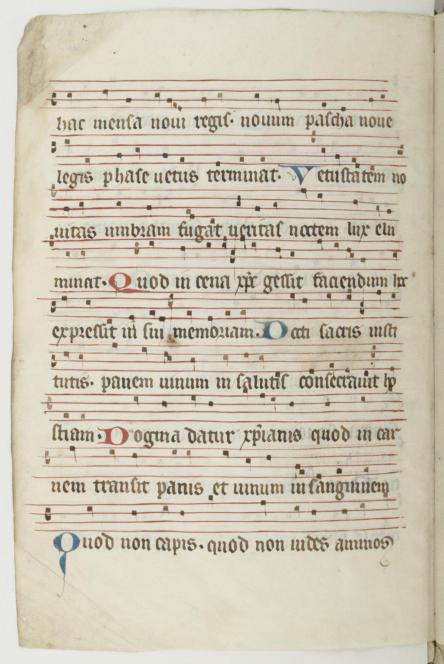 hac mensa noui regis. nouum pascha noue
legis phase uetus terminat. Vetustatem no
uitas umbram fugat ueritas noctem lux elu
minat. Quod in cena xpc gessit faciendum hoc
expressit in sui memoriam. Docti sacris insti
tutis. panem uinum in salutis consecrauit ho
stiam. Dogma datur xpianis quod in car
nem transit panis et uinum in sanguinem
Quod non capis. quod non uides animos